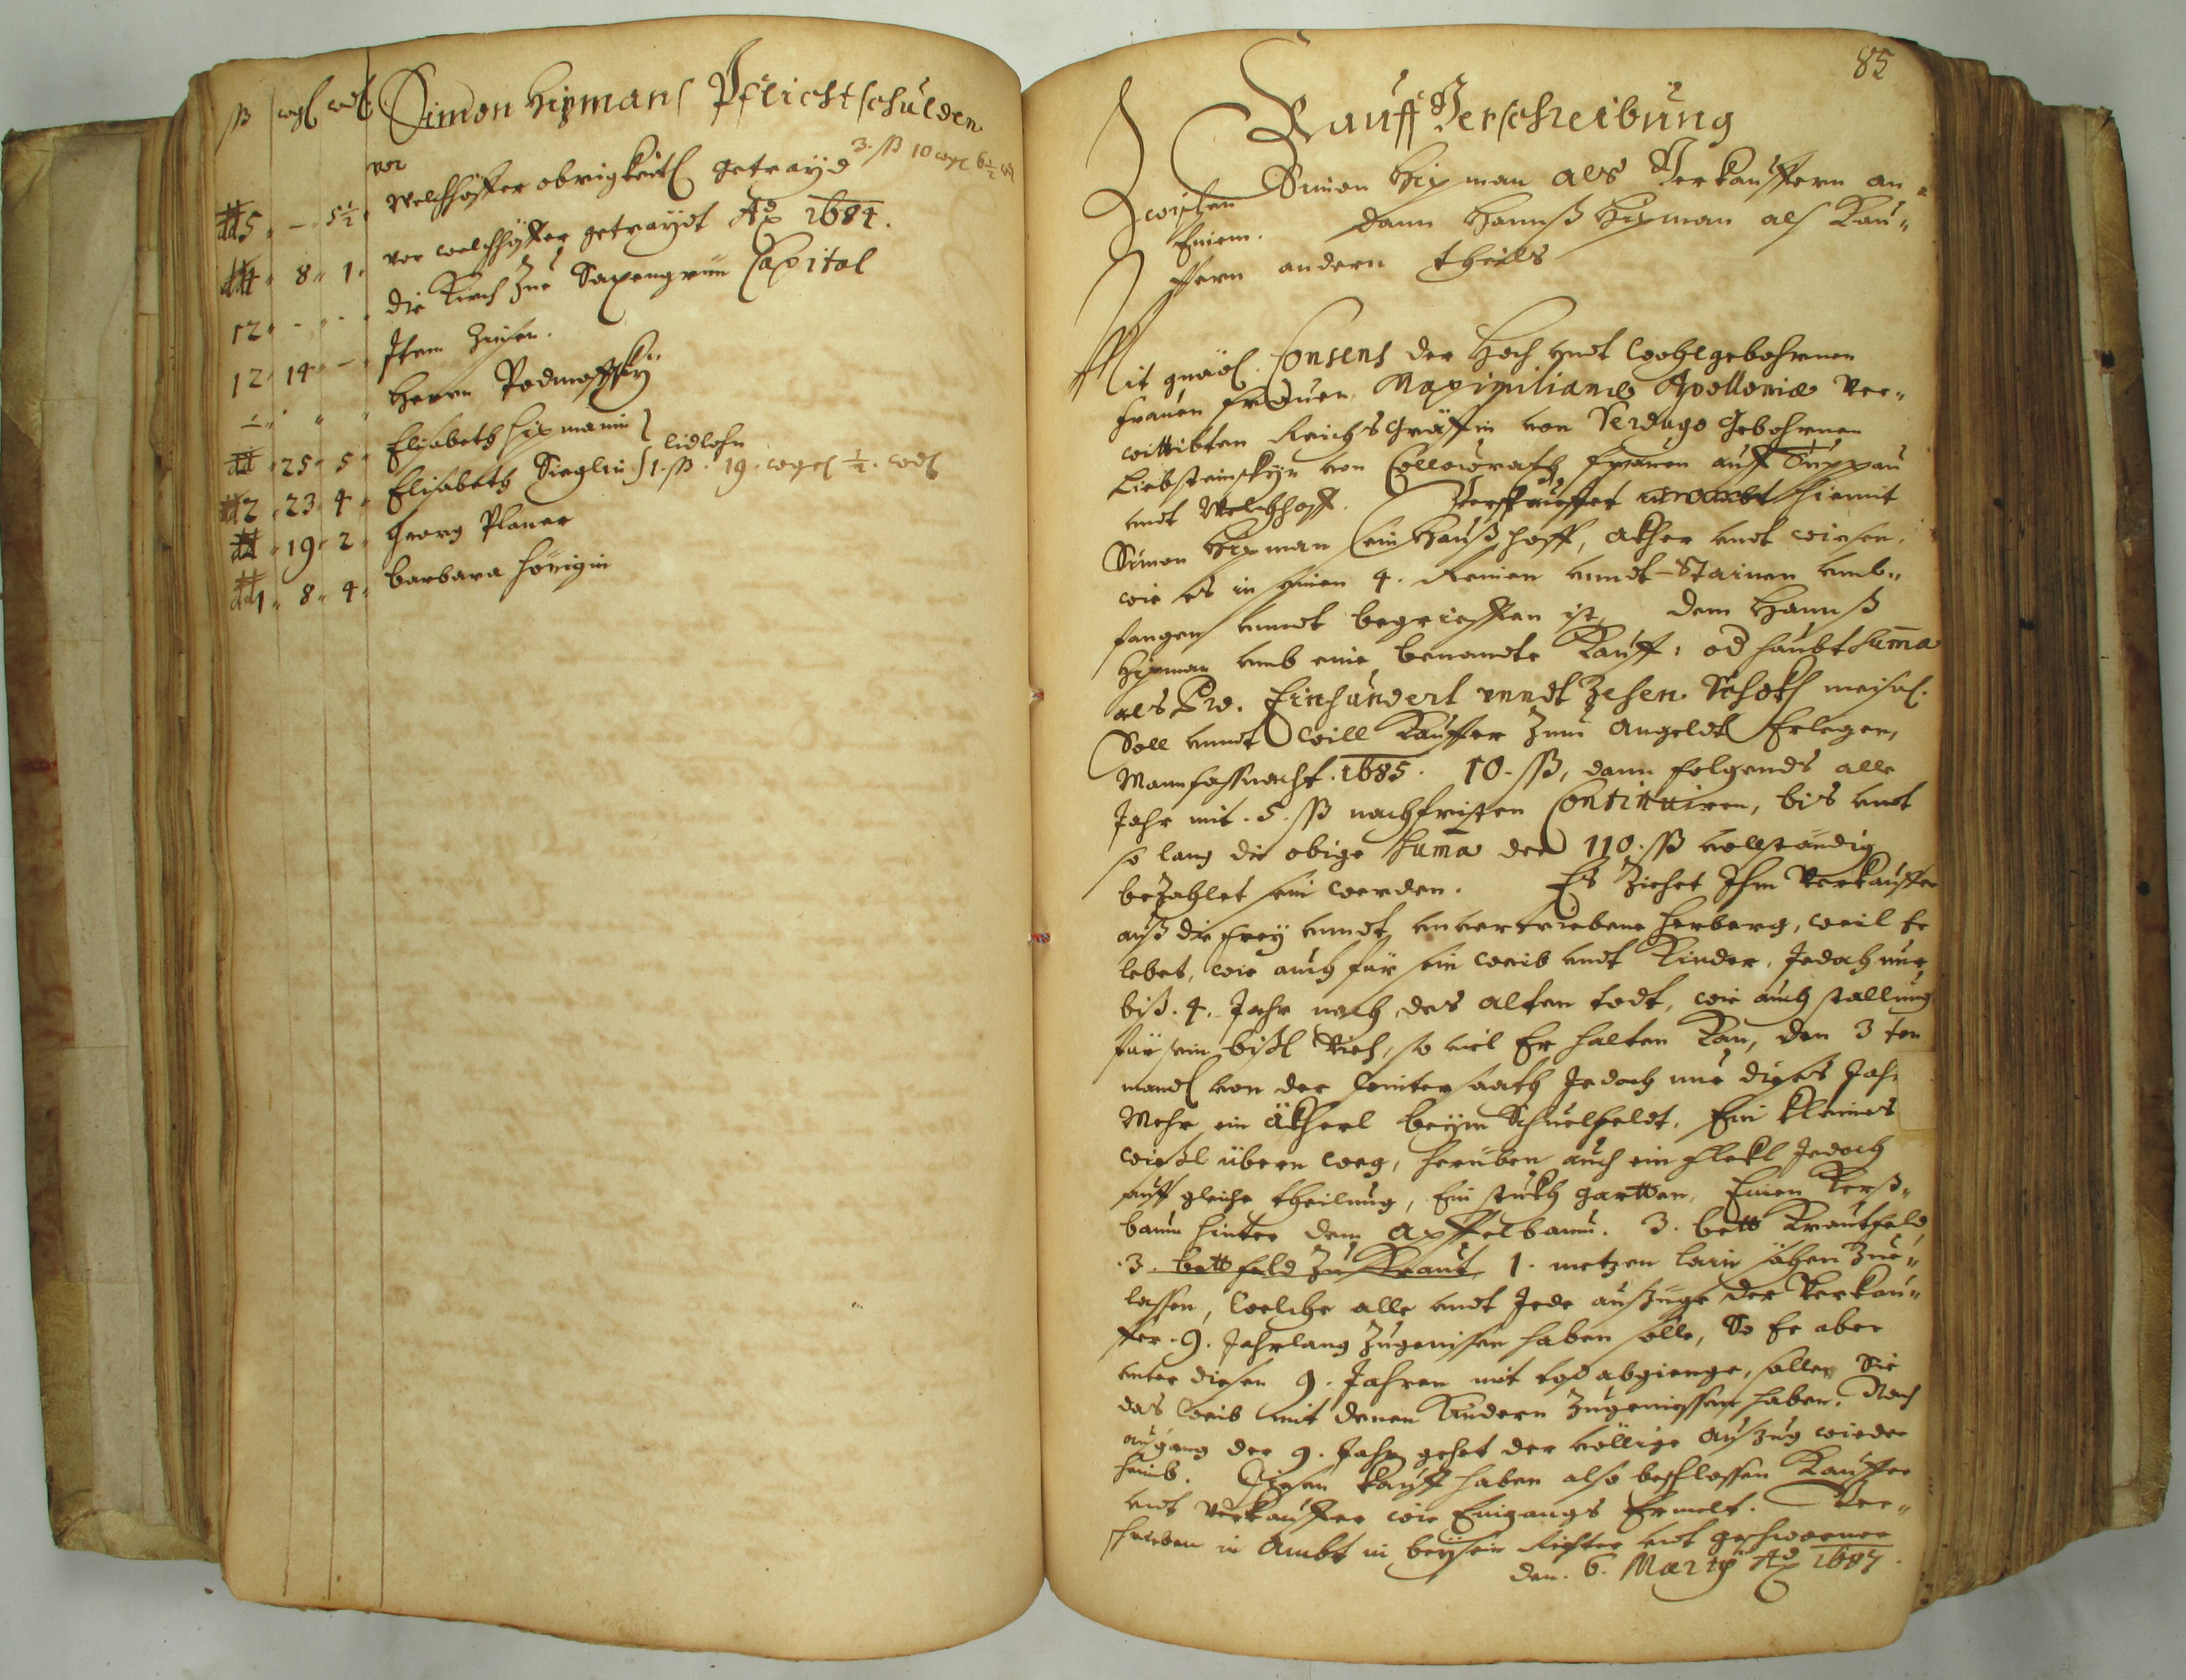 Simon Hipmans Pflichtschulden
vor Welchhoffer obrigkeitl getrayd 3. ß 10
5 — 5½ vor welchhoffer getraydt Aō 1684.
8 1 die Kirch Zue Saxengrün Capital
12 - - Item Zinsen.
12 14 - Herrn Podmoffsky
Elisabeth Hipmanin
25 5 Elisabeth Sieglin } lidlohn 1. ß. 19. ½.
2 23 4 Georg Planer
19 2 Barbara Hönigin
1 8 4
85
Kauff Verschreibung
Zwischen Simon Hipman als Verkauffern an
Einem. dann Hannß Hipman als Kau„
ffern andern theils
Mit gnäd. Consens der Hoch undt Wohlgebohrnen
Frauen Frauen Maximilianæ Apolloniæ Ver„
wittibten Reichs Gräffin von Verdugo Gebohrnen
Liebsteinskyn von Collowrath Frauen auff Duppau
undt Welchhoff. Verkauffet hiemit
Simon Hipman sein Hauß hoff, äkher undt wiesen.
wie es in seinen 4. Reinen unndt Stainen umb„
fangen unndt begrieffen ist, dem Hannß
Hipman umb eine benandte Kauff: od haubt Suma
als Pr. Einhundert unndt Zehen Schokh meisn.
Soll unndt will Kauffer Zum angeldt Erlegen,
Mannfassnacht. 1685. 10. ß, dann folgends alle
Jahr mit. 5. ß nachfristen Continuiren, bis undt
so lang die obige Suma der 110. ß vollständig
beZahlet sein werden. Es Ziehet Ihm Verkauffer
auß die frey unndt unvertriebene herberg, weil Er
lebet, wie auch für sein weib undt Kinder, Jedoch nur
biß. 4. Jahr nach des alten todt, wie auch stallung
für sein bißl Vieh, so viel Er halten Kan, den 3 ten
mandl von der Wintersaath Jedoch nur dieses Jahr
Mehr ein äkherl beym Schuelfeldt, Ein kleines
wießl übern weg, herüben auch ein flekl Jedoch
auff gleiche theilung, Ein stukh gartten, Einen Kerß„
baum hinter dem apffelbaum. 3. bett Krautfeld,
3. bett feld Zu Kraut, 1. metzen lein söhen Zue„
lassen, welche alle undt Jede außzüge der Verkau„
ffer. 9. Jahrlang Zugenissen haben solle, So Er aber
unter diesen 9. Jahren mit tod abgienge, sollen Sie
das weib mit denen Kindern Zugeniessen haben. Nach
außgang der 9. Jahr gehet der völlige außzug wieder
heimb. Diesen Kauff haben also beschlossen Kauffer
undt Verkauffer wie Eingangs Ermelt. Ver„
schrieben in Ambt in beysein Richter undt geschworner
den. 6. Marty Aō 1687.